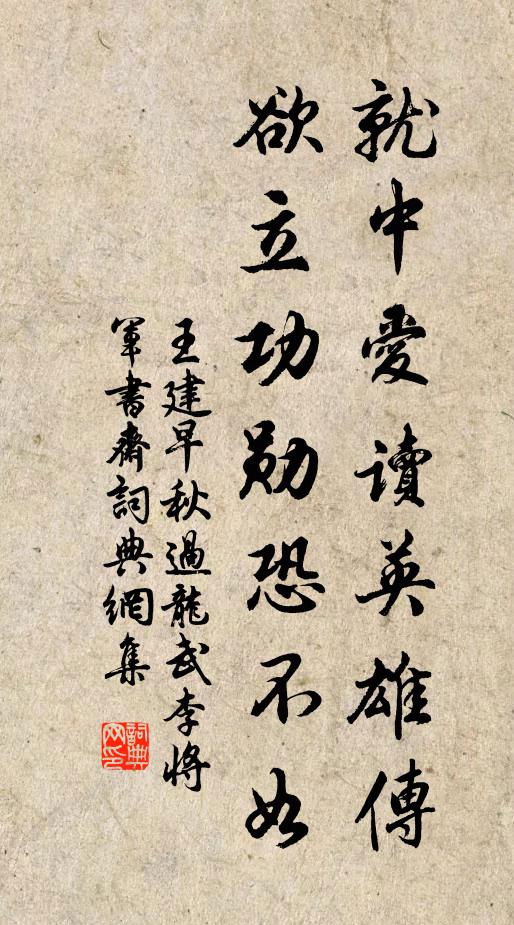 就中愛讀英雄傳
欲立功勛恐不如
王建早秋過龍武李將
軍書齋詞典網集
詞典
网印